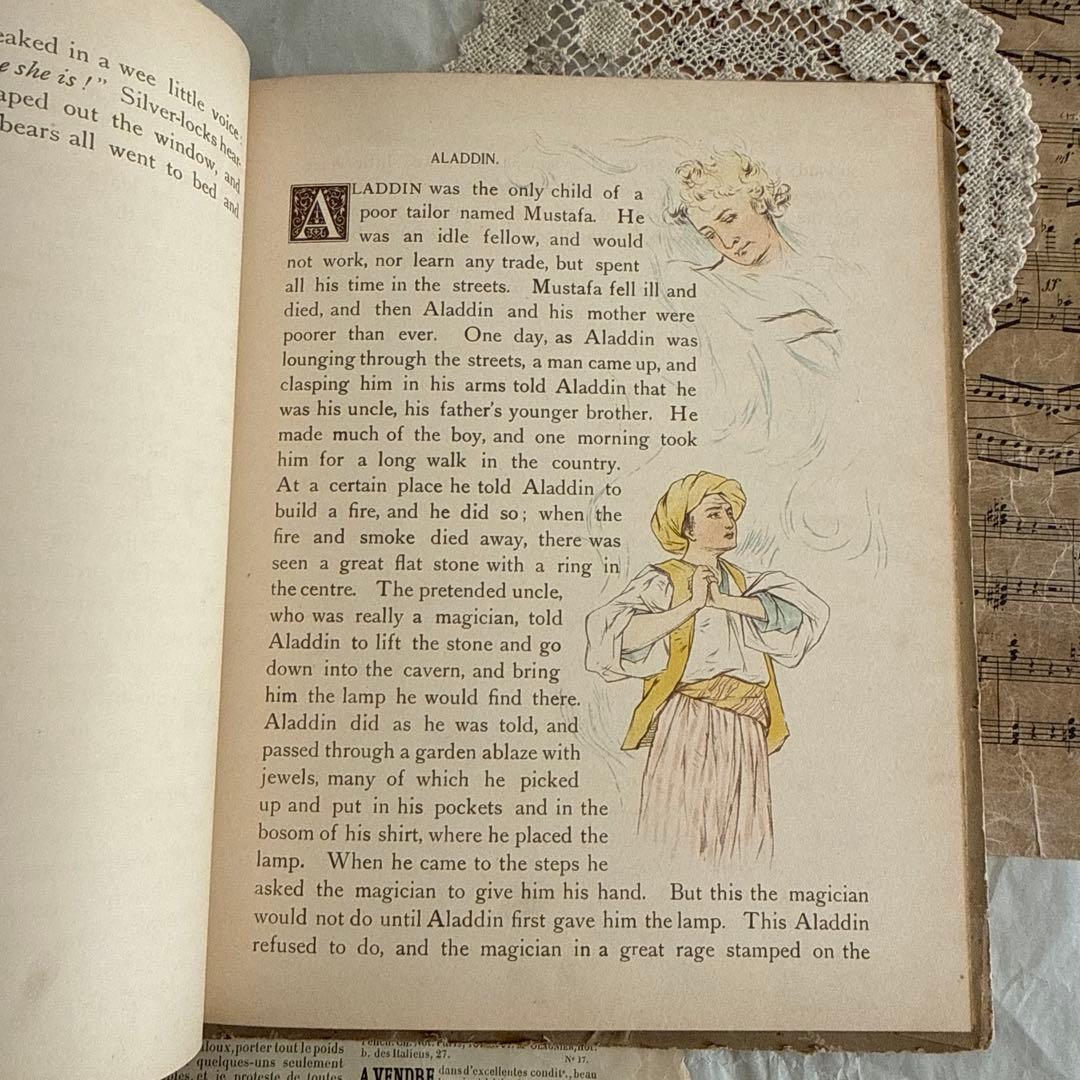 eaked in a wee little voice:
e she is!" Silver-locks hear-
aped out the window, and
bears all went to bed and
ALADDIN.
ALADDIN was the only child of a
poor tailor named Mustafa. He
was an idle fellow, and would
not work, nor learn any trade, but spent
all his time in the streets. Mustafa fell ill and
died, and then Aladdin and his mother were
poorer than ever. One day, as Aladdin was
lounging through the streets, a man came up, and
clasping him in his arms told Aladdin that he
was his uncle, his father's younger brother. He
made much of the boy, and one morning took
him for a long walk in the country.
At a certain place he told Aladdin to
build a fire, and he did so; when the
fire and smoke died away, there was
seen a great flat stone with a ring in
the centre. The pretended uncle,
who was really a magician, told
Aladdin to lift the stone and go
down into the cavern, and bring
him the lamp he would find there.
Aladdin did as he was told, and
passed through a garden ablaze with
jewels, many of which he picked
up and put in his pockets and in the
bosom of his shirt, where he placed the
lamp. When he came to the steps he
asked the magician to give him his hand. But this the magician
would not do until Aladdin first gave him the lamp. This Aladdin
refused to do, and the magician in a great rage stamped on the
loux, porter tout le poids
quelques-uns seulement
et je proteste de toutes
b. des Italiens, 27.
N° 17.
A VENDRE dans d'excellentes condit., beau